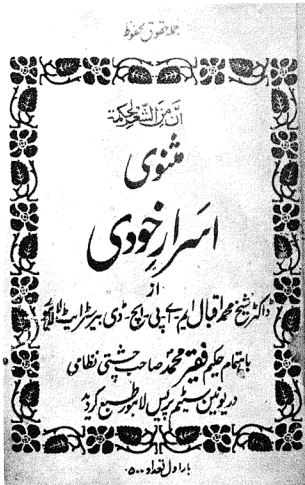 جملہ حقوق محفوظ
ان من الشعر لحکمة
مثنوی
اسرارِ خودی
از
ڈاکٹر شیخ محمد اقبال ایم۔اے۔پی۔ایچ۔ڈی۔بیرسٹرایٹ لا لاہور
باہتمام حکیم فقیر محمد صاحب چشتی نظامی
در یونین سٹیم پریس لاہور طبع گردید
بار اول تعداد ۵۰۰